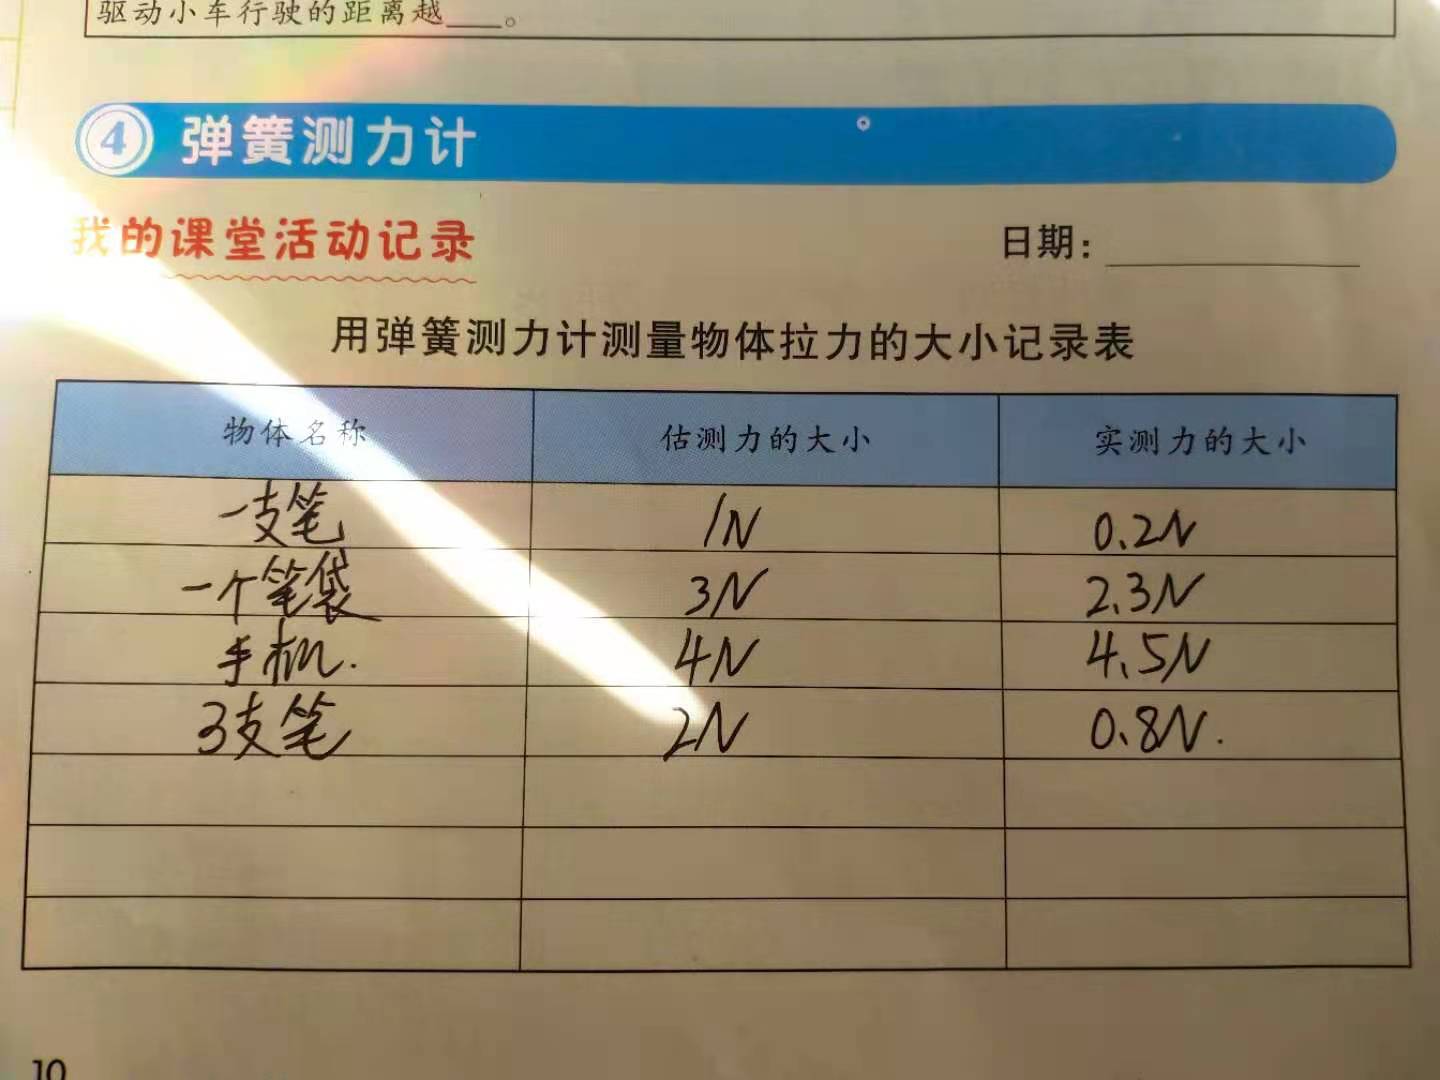 驱动小车行驶的距离越___。
4 弹簧测力计
我的课堂活动记录 日期：
用弹簧测力计测量物体拉力的大小记录表
物体名称 估测力的大小 实测力的大小
一支笔 1N 0.2N
一个笔袋 3N 2.3N
手机. 4N 4.5N
3支笔 2N 0.8N.
10